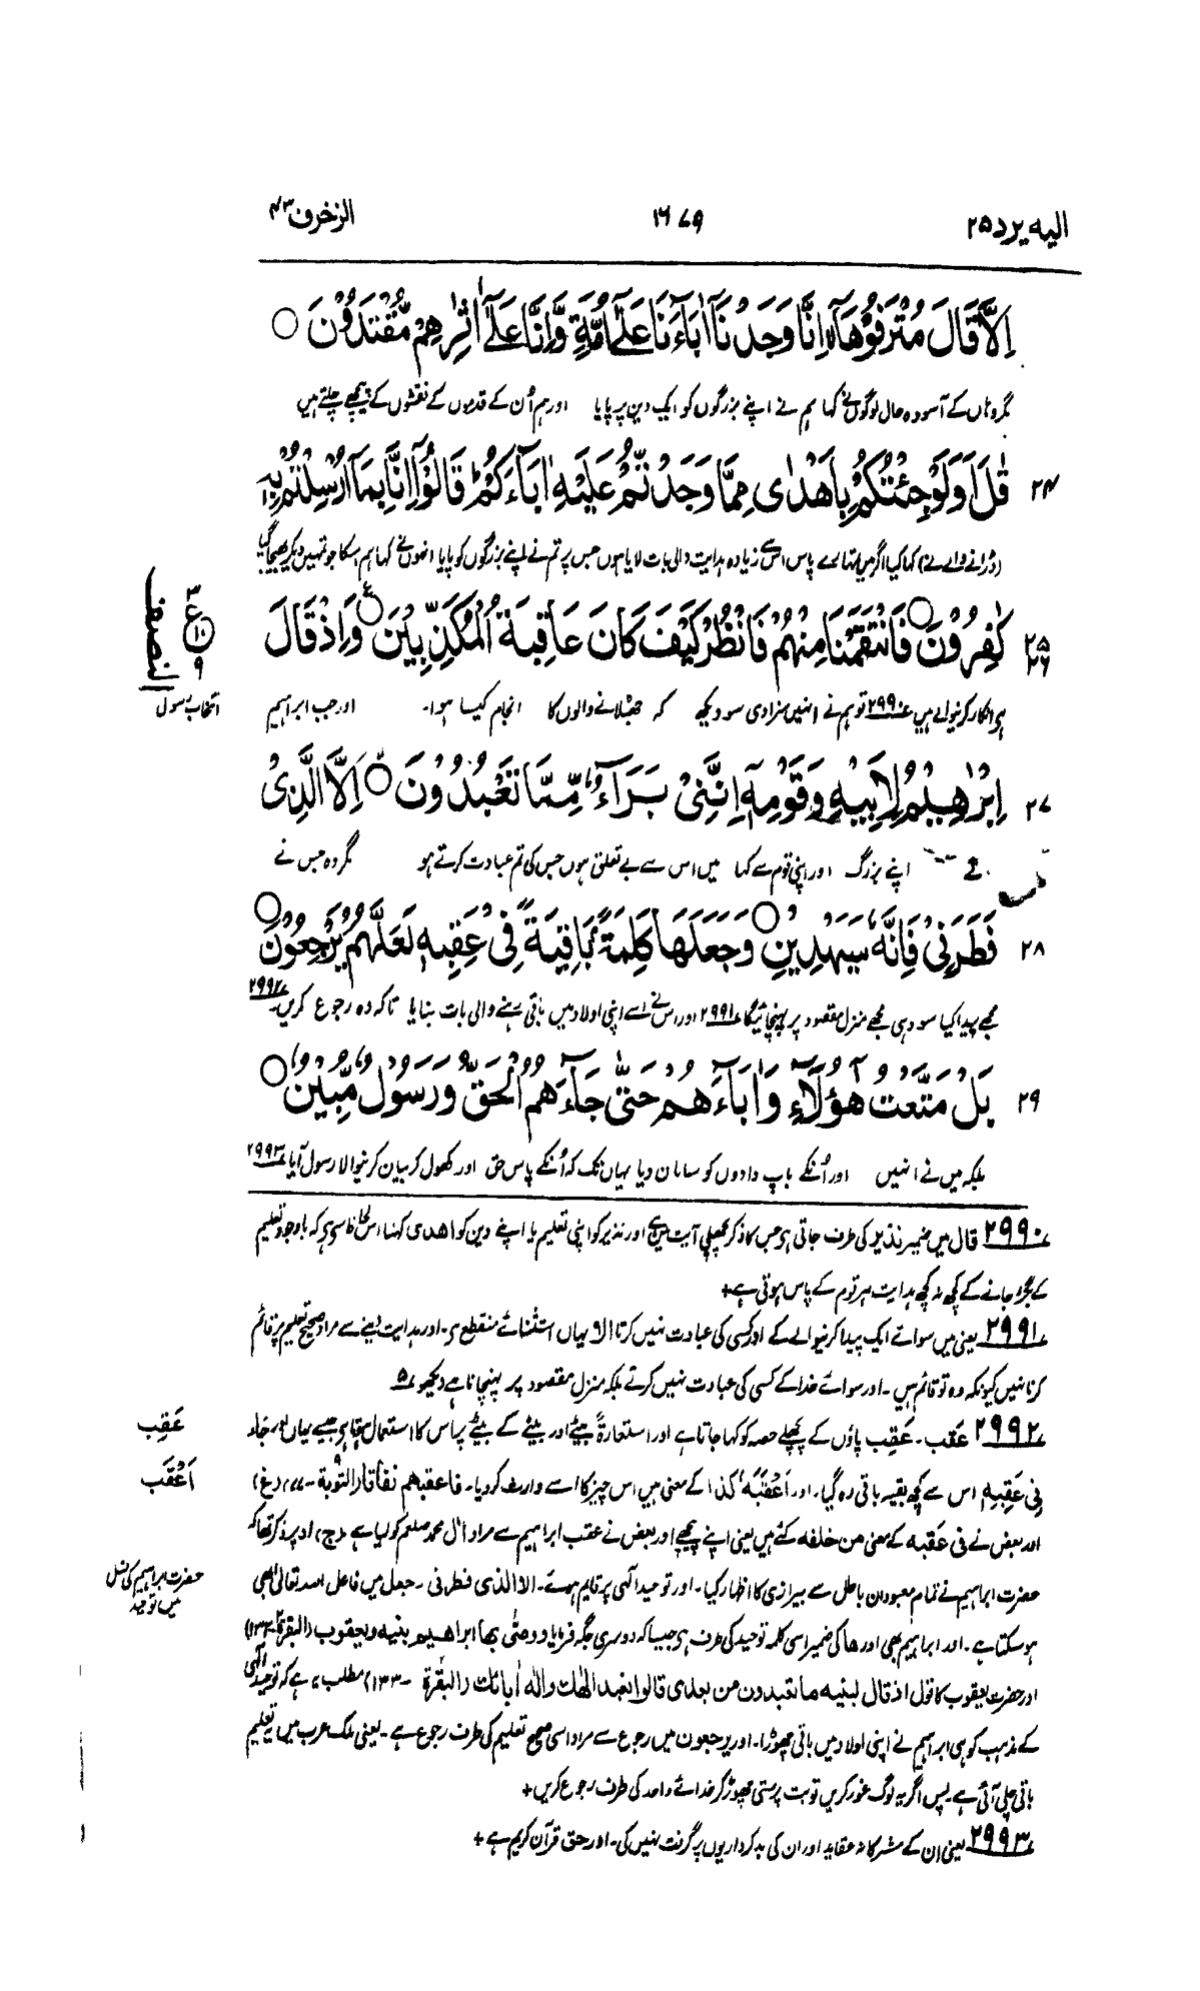 الیہ یرد ۲۵ ۱۶۷۹ الزخرف ۴۳
اِلَّا قَالَ مُتْرَفُوْهَاۤ اِنَّا وَجَدْنَاۤ اٰبَآءَنَا عَلٰۤى اُمَّةٍ وَّاِنَّا عَلٰۤى اٰثٰرِهِمْ مُّقْتَدُوْنَ ○
مگر وہاں کے آسودہ حال لوگوں نے کہا ہم نے اپنے بزرگوں کو ایک دین پر پایا اور ہم اُن کے قدموں کے نقشوں کے پیچھے چلتے ہیں
۲۴ قٰلَ اَوَلَوْ جِئْتُكُمْ بِاَهْدٰى مِمَّا وَجَدْتُّمْ عَلَيْهِ اٰبَآءَكُمْ ؕ قَالُوْۤا اِنَّا بِمَاۤ اُرْسِلْتُمْ بِهٖ
(ڈرانے والے نے) کہا کیا اگر میں تمہارے پاس اس سے زیادہ ہدایت والی بات لایا ہوں جس پر تم نے اپنے بزرگوں کو پایا انھوں نے کہا ہم اسکا جو تمہیں دیکر بھیجا گیا
۲۵ ۲۶ كٰفِرُوْنَ ○ فَانْتَقَمْنَا مِنْهُمْ فَانْظُرْ كَيْفَ كَانَ عَاقِبَةُ الْمُكَذِّبِيْنَ ○ وَاِذْ قَالَ
النصف
ع ۱۰ ۹
ہو انکار کرنیوالے ہیں ۲۹۹۰ تو ہم نے انہیں سزا دی سو دیکھ کہ جھٹلانے والوں کا انجام کیسا ہوا۔ اور جب ابراہیم
انتخاب رسول
۲۷ اِبْرٰهِيْمُ لِاَبِيْهِ وَقَوْمِهٖۤ اِنَّنِيْ بَرَآءٌ مِّمَّا تَعْبُدُوْنَ ○ اِلَّا الَّذِيْ
نے اپنے بزرگ اور اپنی قوم سے کہا میں اس سے بے تعلق ہوں جس کی تم عبادت کرتے ہو مگر وہ جس نے
۲۸ فَطَرَنِيْ فَاِنَّهٗ سَيَهْدِيْنِ ○ وَجَعَلَهَا كَلِمَةًۢ بَاقِيَةً فِيْ عَقِبِهٖ لَعَلَّهُمْ يَرْجِعُوْنَ ○
مجھے پیدا کیا سو وہی مجھے منزل مقصود پر پہنچائیگا ۲۹۹۱ اور اس نے اسے اپنی اولاد میں باقی رہنے والی بات بنایا تاکہ وہ رجوع کریں ۲۹۹۲
۲۹ بَلْ مَتَّعْتُ هٰۤؤُلَآءِ وَاٰبَآءَهُمْ حَتّٰى جَآءَهُمُ الْحَقُّ وَرَسُوْلٌ مُّبِيْنٌ ○
بلکہ میں نے انہیں اور اُنکے باپ دادوں کو سامان دیا یہاں تک کہ اُنکے پاس حق اور کھول کر بیان کرنیوالا رسول آیا ۲۹۹۳
۲۹۹۰ قال میں ضمیر نذیر کی طرف جاتی ہو جس کا ذکر پچھلی آیت میں ہے اور نذیر کو اپنی تعلیم یا اپنے دین کو اھدی کہنا اس لحاظ سے ہی کہ باوجود تعلیم
کے بگڑ جانے کے کچھ نہ کچھ ہدایت ہر قوم کے پاس ہوتی ہے+
۲۹۹۱ یعنی میں سوائے ایک پیدا کرنیوالے کے اور کسی کی عبادت نہیں کرتا الا یہاں استثنائے منقطع ہی۔ اور ہدایت دینے سے مراد صحیح تعلیم پر قائم
کرنا نہیں کیونکہ وہ تو قائم ہیں۔ اور سوائے خدا کے کسی کی عبادت نہیں کرتے بلکہ منزل مقصود پر پہنچانا ہے دیکھو ۵
۲۹۹۲ عقب۔ عَقِب پاؤں کے پچھلے حصہ کو کہا جاتا ہے اور استعارۃً بیٹے اور بیٹے کے بیٹے پر اس کا استعمال ہوتا ہو جیسے یہاں اور جاء
عَقِب
فی عَقِبِهٖ اس سے کچھ بقیہ باقی رہ گیا۔ اور اَعْقَبَہٗ کذا کے معنی ہیں اس چیز کا اسے وارث کر دیا۔ فاعقبھم نفاقا (التوبۃ ۹-۷۷) (غ)
اَعْقَب
اور بعض نے فی عقبه کے معنی من خلفه کئے ہیں یعنی اپنے پیچھے اور بعض نے عقب ابراہیم سے مراد اٰل محمد صلعم کو لیا ہے (ج) اوپر ذکر تھا کہ
حضرت ابراہیم نے تمام معبودان باطل سے بیزاری کا اظہار کیا۔ اور توحید الٰہی پر قایم ہوئے۔ الا الذی فطرنی۔ جعل میں فاعل اللہ تعالیٰ بھی
حضرت ابراہیم کی نسل میں توحید
ہو سکتا ہے۔ اور ابراہیم بھی اور ھا کی ضمیر اسی کلمہ توحید کی طرف ہو جیسا کہ دوسری جگہ فرمایا ووصّٰی بها ابراهیم بنیه ویعقوب (البقرۃ ۲-۱۳۲)
اور حضرت یعقوب کا قول اذ قال لبنیه ما تعبدون من بعدی قالوا نعبد الٰهك واله اٰبائك (البقرۃ ۲-۱۳۳) مطلب یہ ہے کہ توحید الٰہی
کے مذہب کو ہی ابراہیم نے اپنی اولاد میں باقی چھوڑا۔ اور یرجعون میں رجوع سے مراد اسی صحیح تعلیم کی طرف رجوع ہے۔ یعنی ملک عرب میں یہ تعلیم
باقی چلی آئی ہے۔ پس اگر یہ لوگ غور کریں تو بت پرستی چھوڑ کر خدائے واحد کی طرف رجوع کریں+
۲۹۹۳ یعنی ان کے مشرکانہ عقاید اور ان کی بدکرداریوں پر گرفت نہیں کی۔ اور حق قرآن کریم ہے+